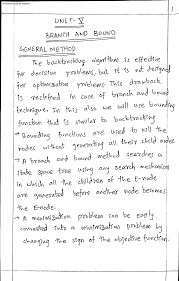 1
UNIT-V
BRANCH AND BOUND
GENERAL METHOD
The backtracking algorithm is effective
for decision problems, but it is not designed
for optimization problems. This drawback
is rectified in case of branch and bound
technique. In this also we will use bounding
function that is similar to backtracking
→ Bounding functions are used to kill the
nodes without generating all their child nodes
→ A branch and bound method searches a
state space tree using any search mechanism
in which all the children of the E-node
are generated before another node becomes
the E-node.
→ A maximization problem can be easily
converted into a minimization problem by
changing the sign of the objective function.